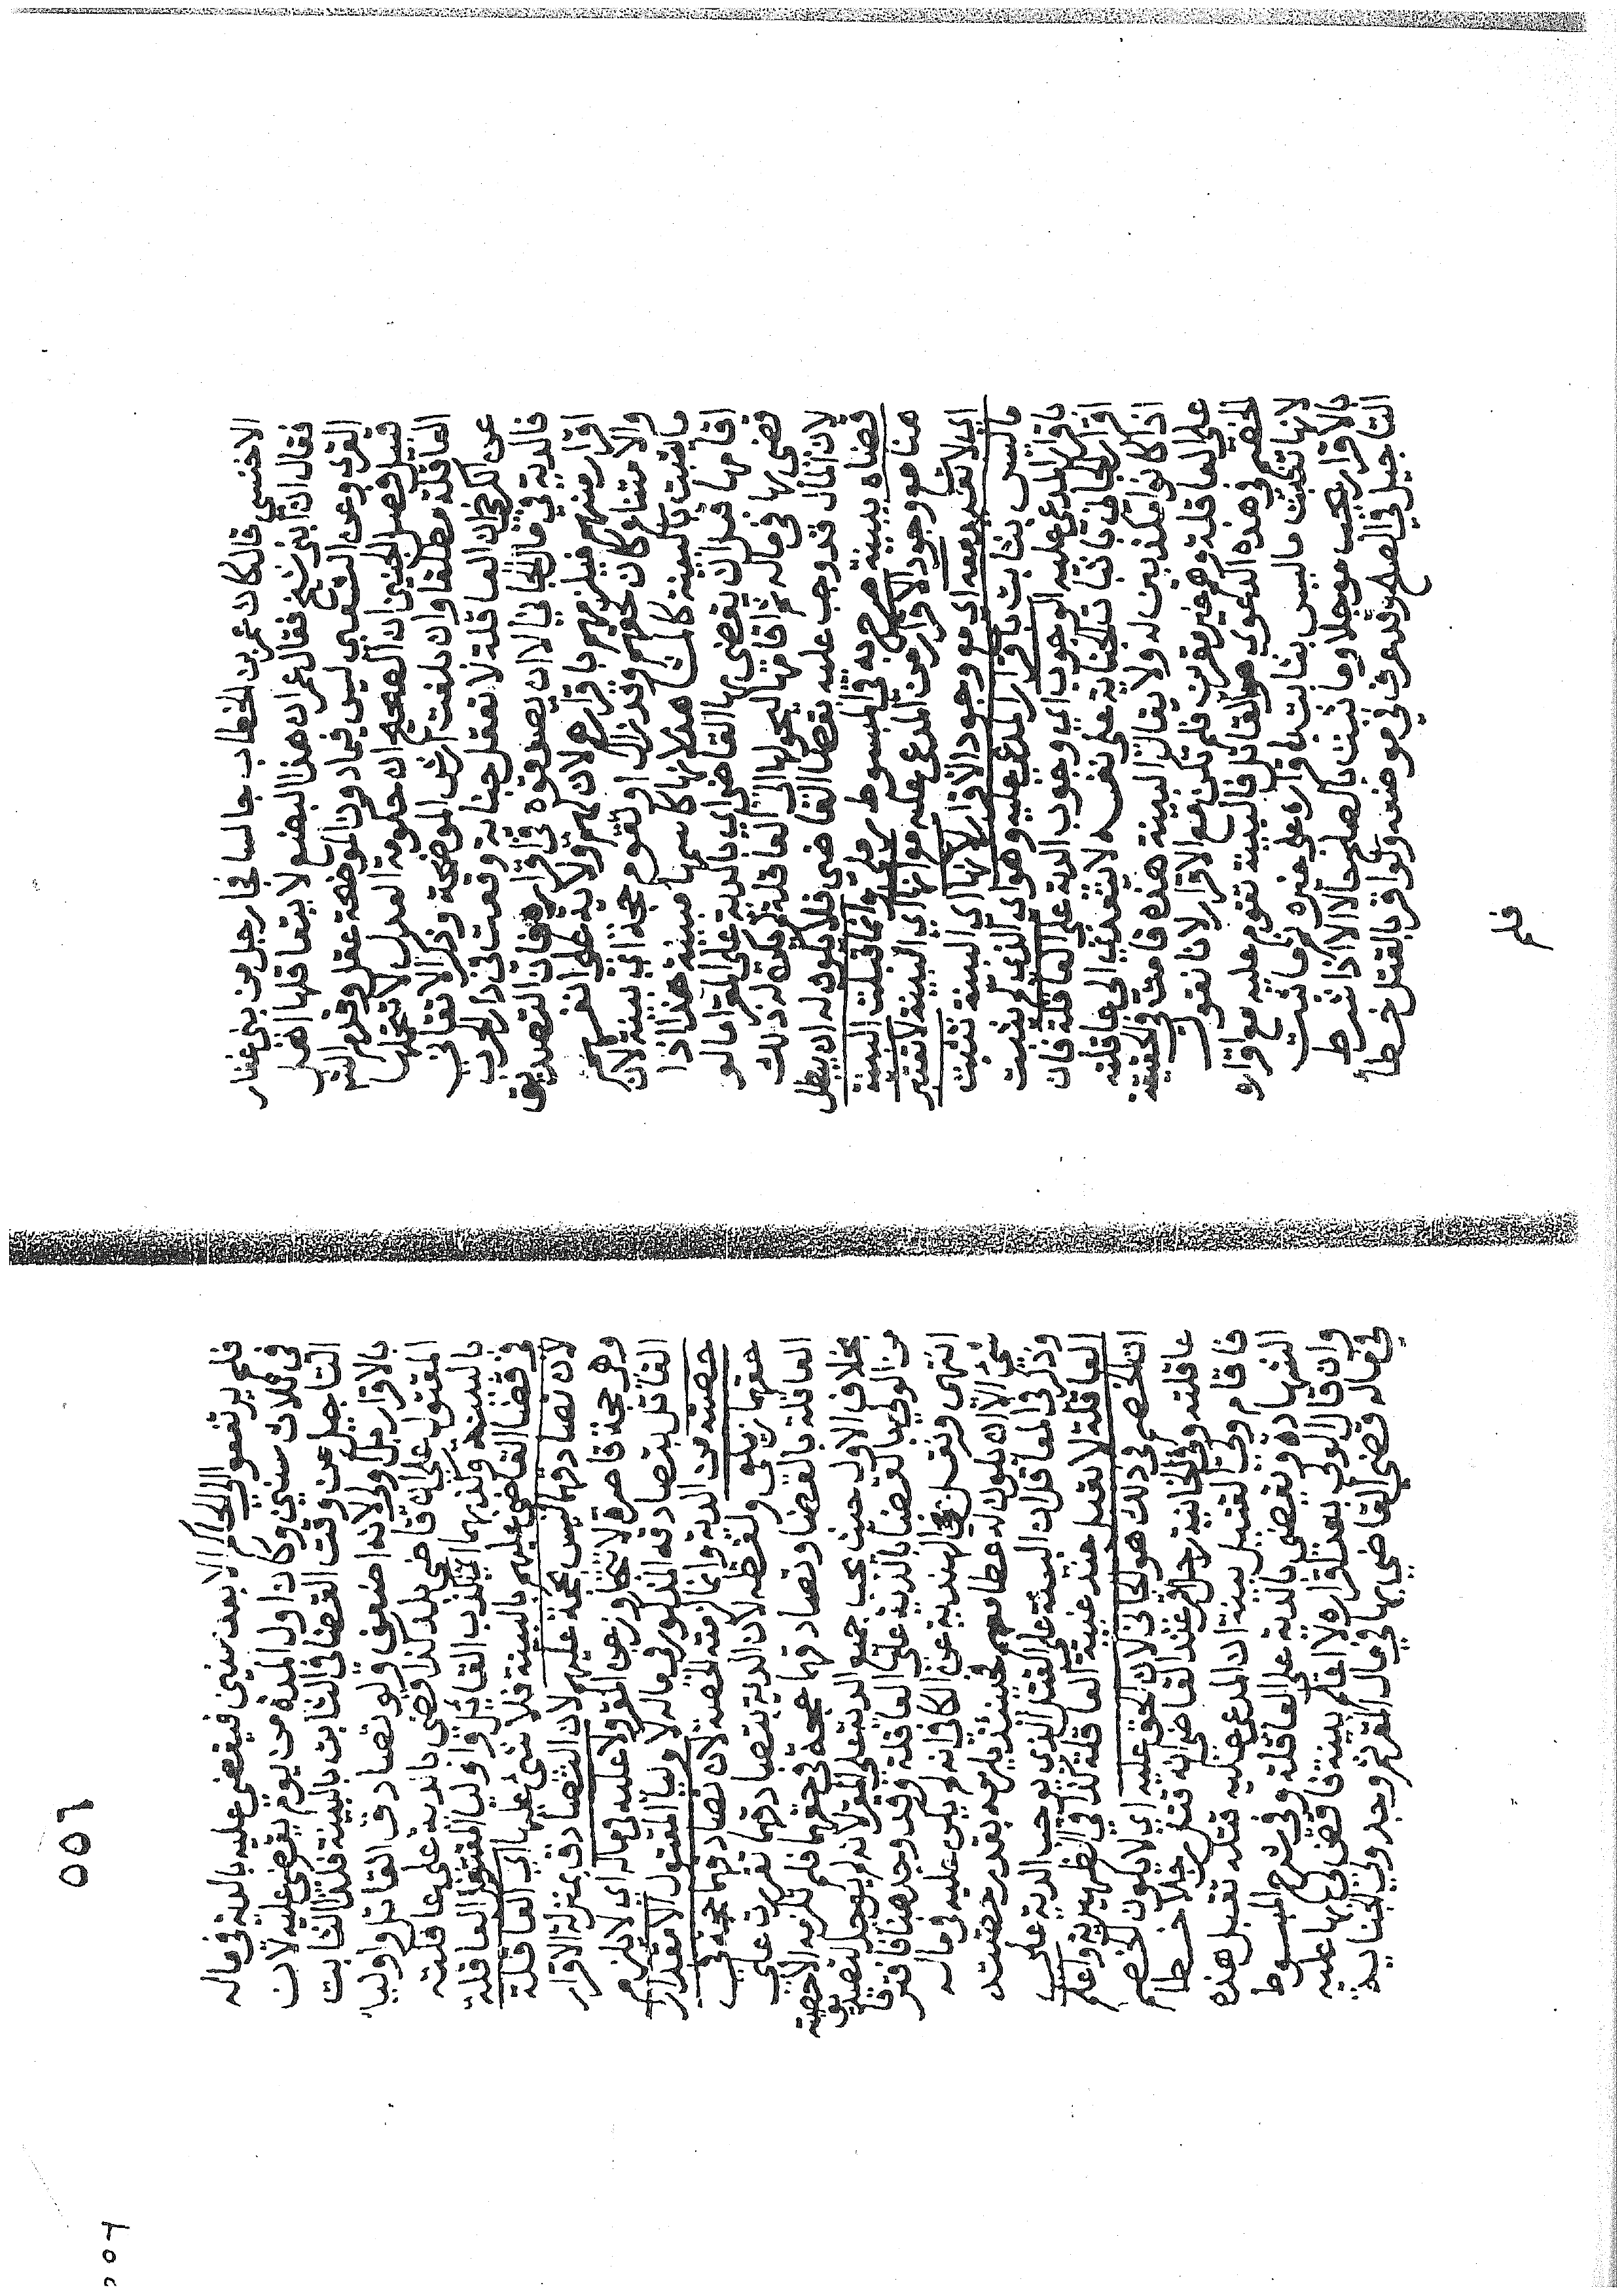 الاخنسي قال كان عمر بن الخطاب جالسا فجا رجل من بني غفار
فقال ان ابني شج فقال عمر ان هذا البضع لا يتعاقلها اهل
القرى وعن الشعبي ليس فيما دون الموضحة عقل وقدم الشم
قبيل فصل الجنين ان الصحيح ان حكومة العدل لا تتحملها
العاقلة مطلقا وان بلغت ارش الموضحة وذكر الاتقاني
عن الكرخي ان العاقلة لا تعقل جناية وقعت في دار الحرب
فالدية في مال الجاني الا ان يصدقوه في اقراره فان التصديق
اقرار منهم فيلزمهم باقرارهم لان لهم ولاية على انفسهم
والامتناع كان لحقهم وقد زال او تقوم حجة اي بينة لان
ما ثبت بالبينة كالمشاهد لانها كاسمها مبينة هذا اذا
اقامها قبل ان يقضي بها القاضي اي بالدية على المقر اما لو
قضى بها في ماله ثم اقامها ليحولها الى العاقلة لم يكن له ذلك
لان المال قد وجب عليه بقضا القاضي فلا يكون له ان يبطل
قضاه ببينة صرح به في المبسوط رملي وانما قبلت البينة
هنا مع وجود الاقرار من المدعى عليه مع انها اي البينة لا تعتبر
اي لا تفيد معه اي مع وجود الاقرار لانها اي البينة تثبت
ما ليس بثابت باقرار المدعى عليه وهو اي الذي لم يثبت
باقرار المدعى عليه الوجوب اي وجوب الدية على العاقلة فان
اقرار الجاني باثبات الجناية على نفسه لا يتعدى الى عاقلته
اذا كانوا مكذبين له ولا يقال البينة هذه قامت في الحقيقة
على العاقلة وهم غير مقرين فلم تكن مع الاقرار لانا نقول
الخصم في هذه الدعوى هو القاتل فالبينة تقوم عليه مع اقراره
لانها تثبت ما ليس بثابت باقراره على غيره ثم ما ثبت
بالاقرار يجب موجلا وما ثبت بالصلح حالا الا اذا شرط
التاجيل في الصلح وقد عرف في موضعه ولو اقر بالقتل خطأ
فلم
٥٥٦
فلم يرتفعوا الى الحاكم الا بعد سنين فيقضى عليه بالدية في ماله
في ثلاث سنين وكان اول المدة من يوم يقضى عليه لان
التاجيل من وقت القضا في الثابت بالبينة فلذا الثابت
بالاقرار بل اولى لانه اضعف ولو تصادق القاتل واوليا
المقتول على ان قاضي بلد كذا قضى بالدية على عاقلته
بالبينة وكذبهما اي كذب القاتل واوليا المقتول العاقلة
في قضا القاضي عليهم بالبينة فلا شي عليها اي العاقلة
لان تصادقهما ليس بحجة عليهم لان التصادق بمنزلة الاقرار
وهي حجة قاصرة لا تتجاوز عن المقر ولا عليه في ماله اي لا يلزم
القاتل بتصادقه المذكور في ماله لاوليا المقتول الا مقدار
حصته من الدية وانما لزمته الحصة لان تصادقهما حجة في
حقهما زيلعي ولفظه لان الدية بتصادقهما تقررت على
العاقلة بالقضا وتصادقهما حجة في حقهما فلم تلزمه الا حصته
بخلاف الاول حيث يجب جميع الدية على المقر لانه لم يوجد تصديق
من الولي بالقضا بالدية على العاقلة وقد وجد هنا فافترقا
انتهى ونقل في الهندية عن الكافي انه لم يكن عليه في ماله
شي الا ان يكون له عطا معهم فحينئذ يلزمه بقدر حصته
وذكر في المعاقل ان البينة على القتل الذي يوجب الدية على
العاقلة لا تقبل عند غيبة العاقلة كذا في الظهيرية واعلم
ان الخصم في ذلك هو الجاني لان الحق عليه اي لا يكون الخصم
عاقلته وفي الخانية رجل اقر عند القاضي انه قتل رجلا خطأ
فاقام ولي القتيل بينة ان المدعى عليه قتله تقبل هذه
الشهادة ويقضى بالدية على العاقلة وفي شرح المبسوط
وان قال الولي بعد اقراره لا اعلم بينة فاقضي بها عليه
في ماله فقضى القاضي بها في مال المقر ثم وجد ولي الجناية